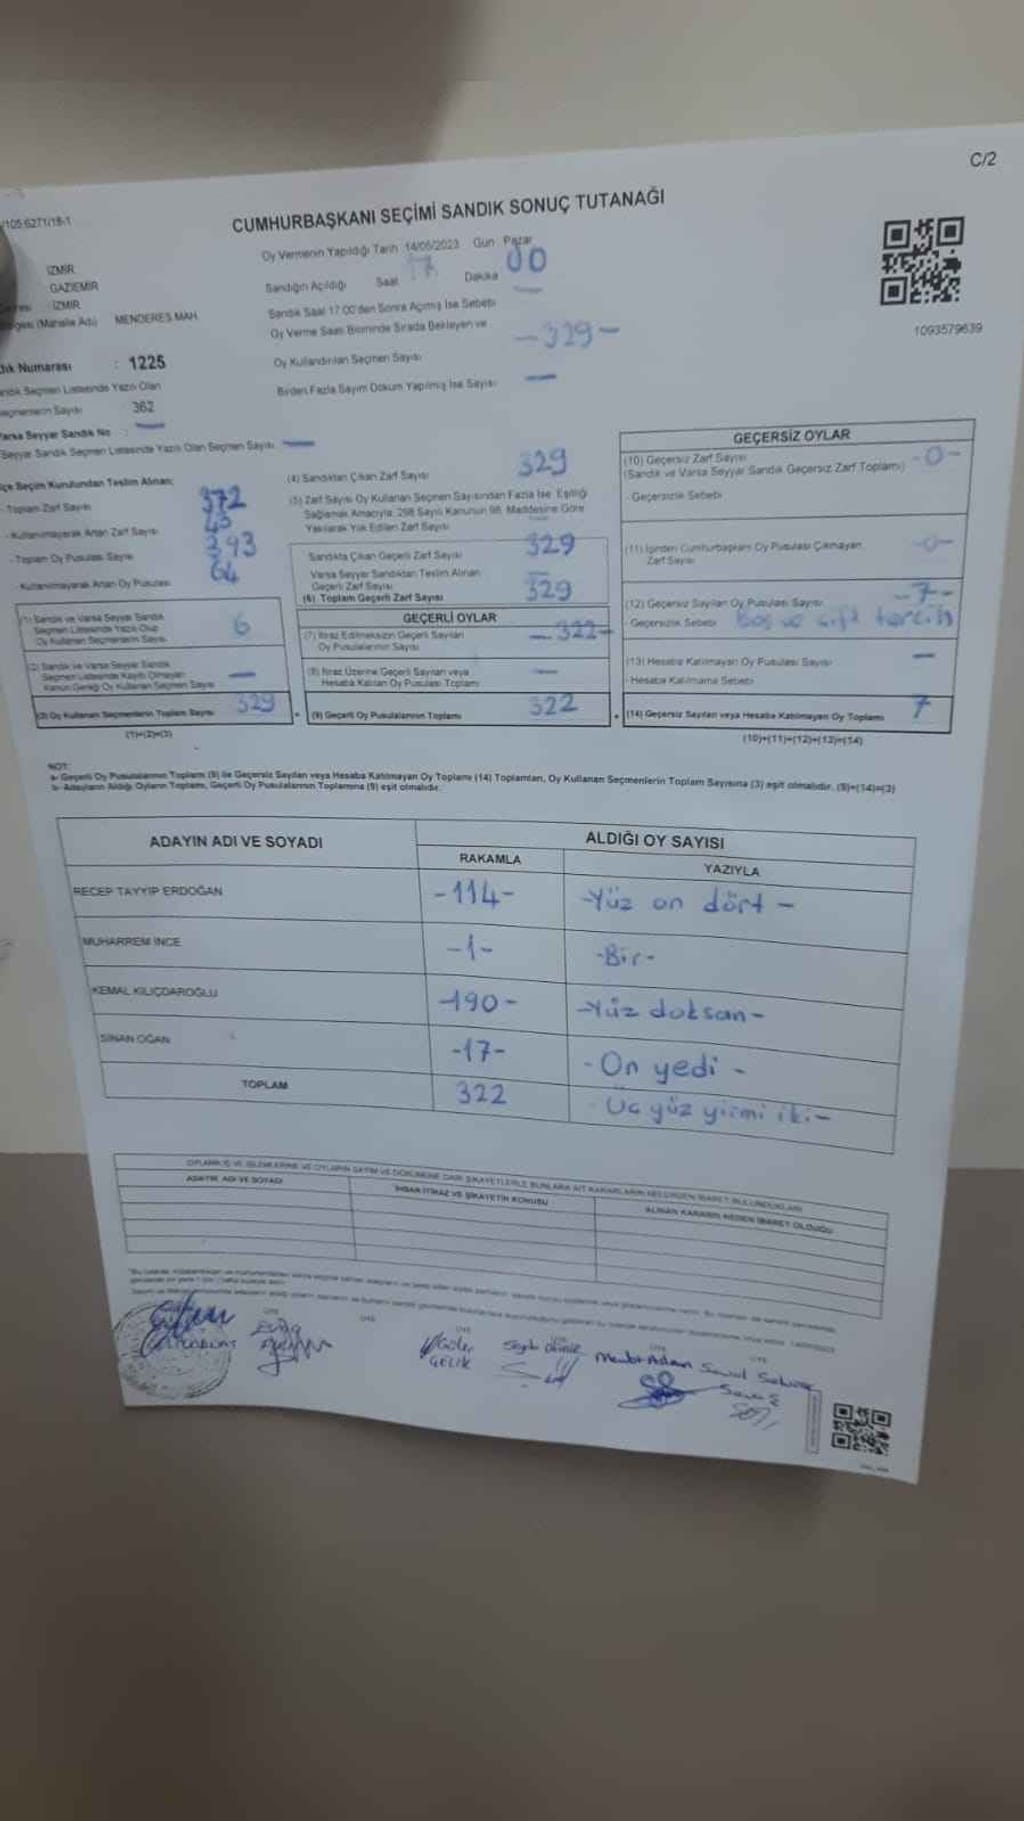 C/2
/105.6271/18-1
CUMHURBAŞKANI SEÇİMİ SANDIK SONUÇ TUTANAĞI
Oy Vermenin Yapıldığı Tarih 14/05/2023 Gün Pazar
İZMİR
GAZİEMİR
İZMİR
(Mahalle Adı) MENDERES MAH.
Sandığın Açıldığı Saat 17 Dakika 00
Sandık Saat 17.00'den Sonra Açılmış İse Sebebi
Oy Verme Saati Bitiminde Sırada Bekleyen ve
Oy Kullandırılan Seçmen Sayısı -329-
Birden Fazla Sayım Döküm Yapılmış İse Sayısı —
1093579639
Numarası : 1225
Sandık Seçmen Listesinde Yazılı Olan
Seçmenlerin Sayısı 362
Varsa Seyyar Sandık No : —
Seyyar Sandık Seçmen Listesinde Yazılı Olan Seçmen Sayısı —
İlçe Seçim Kurulundan Teslim Alınan;
- Toplam Zarf Sayısı 372
- Kullanılmayarak Artan Zarf Sayısı
- Toplam Oy Pusulası Sayısı 393
- Kullanılmayarak Artan Oy Pusulası 64
(1) Sandık ve Varsa Seyyar Sandık
Seçmen Listesinde Yazılı Olup
Oy Kullanan Seçmenlerin Sayısı 6
(2) Sandık ve Varsa Seyyar Sandık
Seçmen Listesinde Kayıtlı Olmayan
Kanun Gereği Oy Kullanan Seçmen Sayısı —
(3) Oy Kullanan Seçmenlerin Toplam Sayısı 329
(1)+(2)=(3)
(4) Sandıktan Çıkan Zarf Sayısı 329
(5) Zarf Sayısı Oy Kullanan Seçmen Sayısından Fazla İse, Eşitliği
Sağlamak Amacıyla, 298 Sayılı Kanunun 98. Maddesine Göre
Yakılarak Yok Edilen Zarf Sayısı —
Sandıkta Çıkan Geçerli Zarf Sayısı 329
Varsa Seyyar Sandıktan Teslim Alınan
Geçerli Zarf Sayısı —
(6) Toplam Geçerli Zarf Sayısı 329
GEÇERLİ OYLAR
(7) İtiraz Edilmeksizin Geçerli Sayılan
Oy Pusulalarının Sayısı -322-
(8) İtiraz Üzerine Geçerli Sayılan veya
Hesaba Katılan Oy Pusulası Toplamı —
(9) Geçerli Oy Pusulalarının Toplamı 322
GEÇERSİZ OYLAR
(10) Geçersiz Zarf Sayısı
(Sandık ve Varsa Seyyar Sandık Geçersiz Zarf Toplamı) -0-
Geçersizlik Sebebi
(11) İçinden Cumhurbaşkanı Oy Pusulası Çıkmayan
Zarf Sayısı -0-
(12) Geçersiz Sayılan Oy Pusulası Sayısı -7-
Geçersizlik Sebebi Boş ve çift tercih
(13) Hesaba Katılmayan Oy Pusulası Sayısı —
- Hesaba Katılmama Sebebi
(14) Geçersiz Sayılan veya Hesaba Katılmayan Oy Toplamı 7
(10)+(11)+(12)+(13)=(14)
NOT:
a- Geçerli Oy Pusulalarının Toplamı (9) ile Geçersiz Sayılan veya Hesaba Katılmayan Oy Toplamı (14) Toplamları, Oy Kullanan Seçmenlerin Toplam Sayısına (3) eşit olmalıdır. (9)+(14)=(3)
b- Adayların Aldığı Oyların Toplamı, Geçerli Oy Pusulalarının Toplamına (9) eşit olmalıdır.
ADAYIN ADI VE SOYADI
ALDIĞI OY SAYISI
RAKAMLA YAZIYLA
RECEP TAYYİP ERDOĞAN -114- -Yüz on dört-
MUHARREM İNCE -1- -Bir-
KEMAL KILIÇDAROĞLU -190- -Yüz doksan-
SİNAN OĞAN -17- -On yedi-
TOPLAM 322 -Üç yüz yirmi iki-
ADAYIN ADI VE SOYADI
ALINAN KARARIN NEDEN İBARET OLDUĞU
Güler
ÇELİK